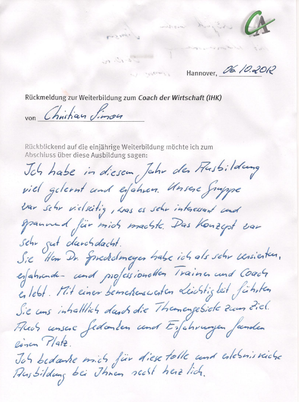 CA
Hannover, 06.10.2012
Rückmeldung zur Weiterbildung zum Coach der Wirtschaft (IHK)
von Christian Simon
Rückblickend auf die einjährige Weiterbildung möchte ich zum
Abschluss über diese Ausbildung sagen:
Ich habe in diesem Jahr der Ausbildung
viel gelernt und erfahren. Unsere Gruppe
war sehr vielseitig, was es sehr interessant und
spannend für mich machte. Das Konzept war
sehr gut durchdacht.
Sie Herr Dr. habe ich als sehr versierten,
erfahrenen und professionellen Trainer und Coach
erlebt. Mit einer bemerkenswerten Leichtigkeit führten
Sie uns inhaltlich durch die Themengebiete zum Ziel.
Auch unsere Gedanken und Erfahrungen fanden
einen Platz.
Ich bedanke mich für diese tolle und erlebnisreiche
Ausbildung bei Ihnen recht herzlich.